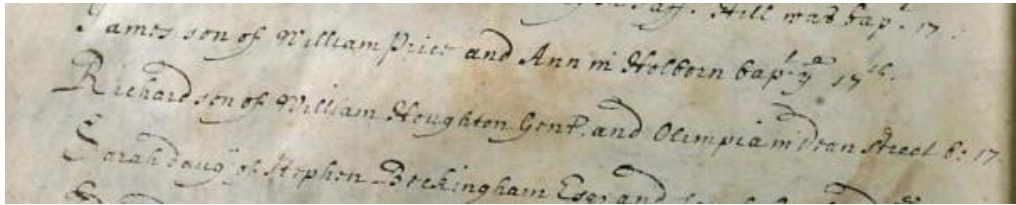 Hill was bap. 17.
James son of William Price and Ann in Holborn bapt ye 17th.
Richard son of William Houghton Gent. and Olimpia in Dean Street b: 17.
Sarah daug of Stephen Beckingham Esqr and